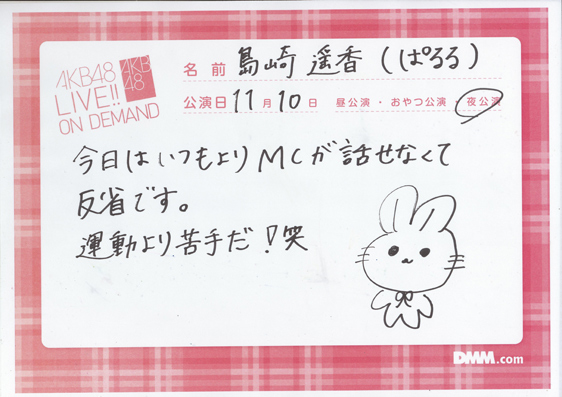 AKB48
LIVE!!
ON DEMAND
AKB
48
名前 島崎 遥香 (ぱるる)
公演日 11月10日 昼公演・おやつ公演・夜公演
今日はいつもよりMCが話せなくて
反省です。
運動より苦手だ!笑
DMM.com